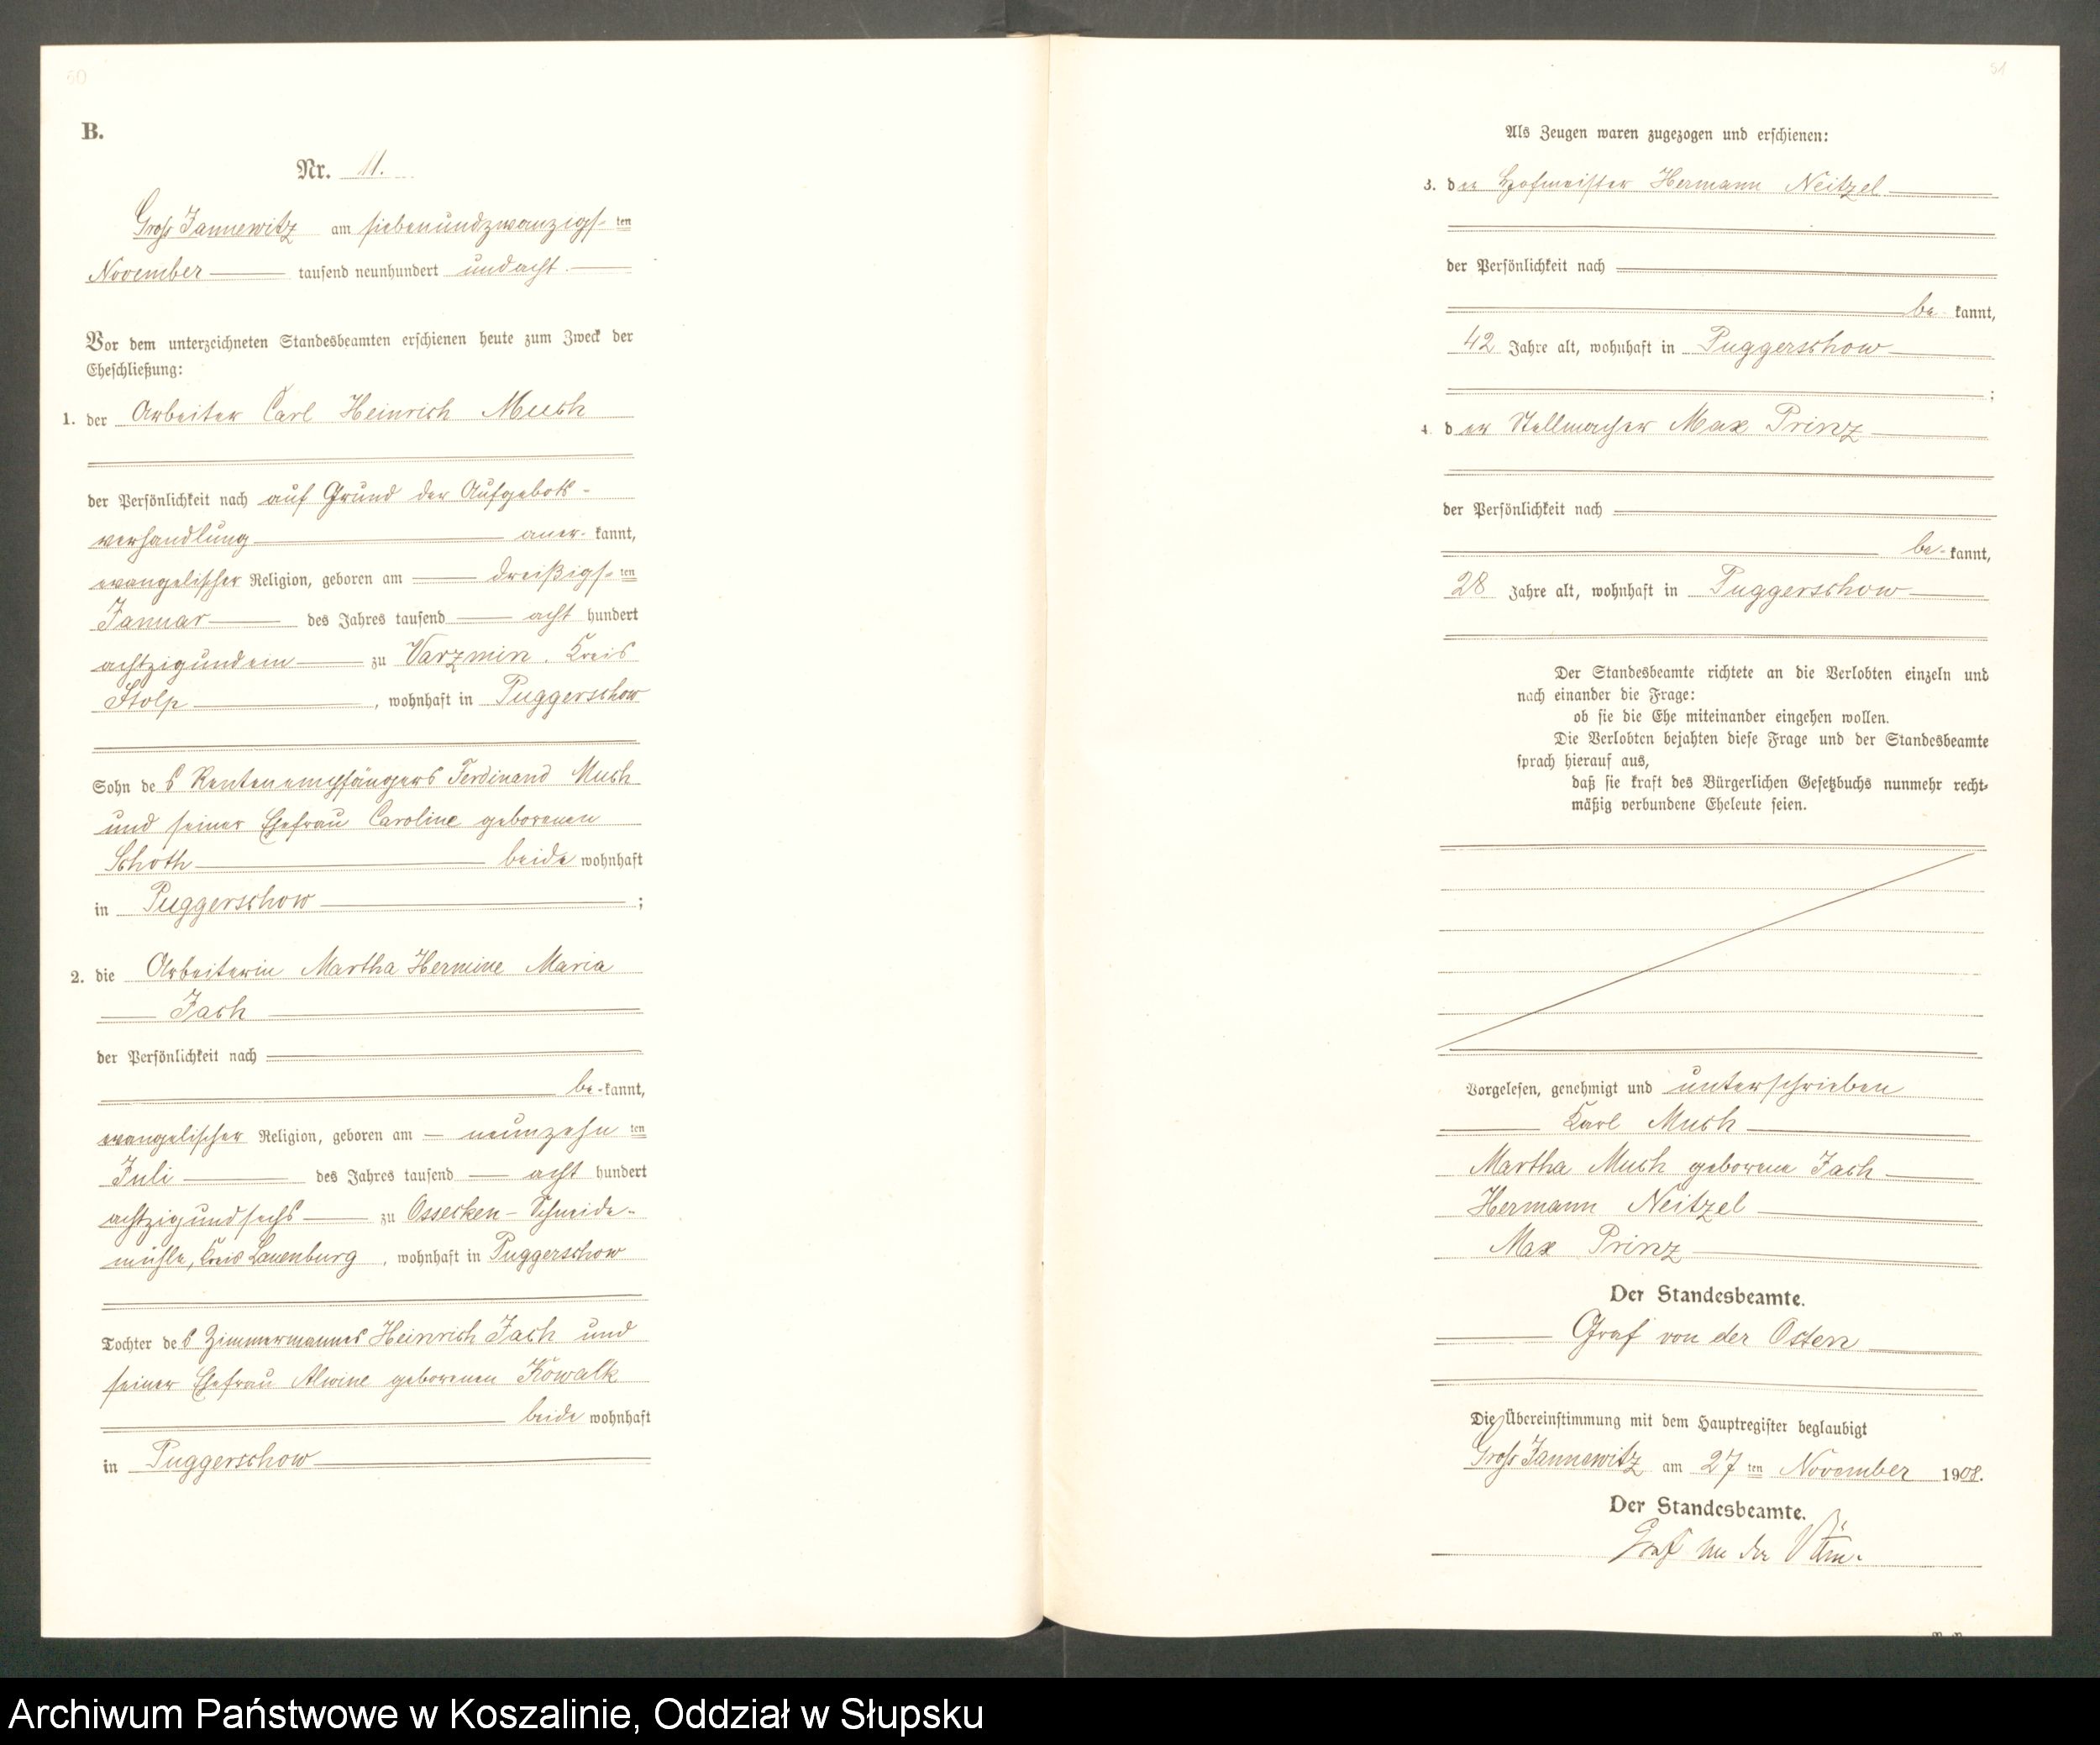 50
B.
Nr. 11.
Gross Jannewitz am siebenundzwanzigs-ten
November tausend neunhundert undacht.
Vor dem unterzeichneten Standesbeamten erschienen heute zum Zweck der
Eheschließung:
1. der Arbeiter Carl Heinrich Much
der Persönlichkeit nach auf Grund der Aufgebots-
verhandlung aner-kannt,
evangelischer Religion, geboren am dreißigs-ten
Januar des Jahres tausend acht hundert
achtzigundein zu Varzmin. Kreis
Stolp, wohnhaft in Puggerschow
Sohn des Rentenempfängers Ferdinand Much
und seiner Ehefrau Caroline geborenen
Schoth beide wohnhaft
in Puggerschow;
2. die Arbeiterin Martha Hermine Maria
Jach
der Persönlichkeit nach
be-kannt,
evangelischer Religion, geboren am neunzehn ten
Juli des Jahres tausend acht hundert
achtzigundsechs zu Ossecken-Schneide-
mühle, Kreis Lauenburg, wohnhaft in Puggerschow
Tochter des Zimmermannes Heinrich Jach und
seiner Ehefrau Alwine geborenen Kowalk
beide wohnhaft
in Puggerschow
51
Als Zeugen waren zugezogen und erschienen:
3. der Hofmeister Hermann Neitzel
der Persönlichkeit nach
be-kannt,
42 Jahre alt, wohnhaft in Puggerschow
;
4. der Stellmacher Max Prinz
der Persönlichkeit nach
be-kannt,
28 Jahre alt, wohnhaft in Puggerschow
Der Standesbeamte richtete an die Verlobten einzeln und
nach einander die Frage:
ob sie die Ehe miteinander eingehen wollen.
Die Verlobten bejahten diese Frage und der Standesbeamte
sprach hierauf aus,
daß sie kraft des Bürgerlichen Gesetzbuchs nunmehr recht-
mäßig verbundene Eheleute seien.
Vorgelesen, genehmigt und unterschrieben
Karl Much
Martha Much geborene Jach
Hermann Neitzel
Max Prinz
Der Standesbeamte.
Graf von der Osten
Die Übereinstimmung mit dem Hauptregister beglaubigt
Gross Jannewitz am 27 ten November 1908.
Der Standesbeamte.
Graf von der Osten.
Archiwum Państwowe w Koszalinie, Oddział w Słupsku